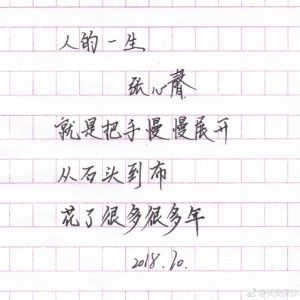 人的一生
张心馨
就是把手慢慢展开
从石头到布
花了很多很多年
2018.10.